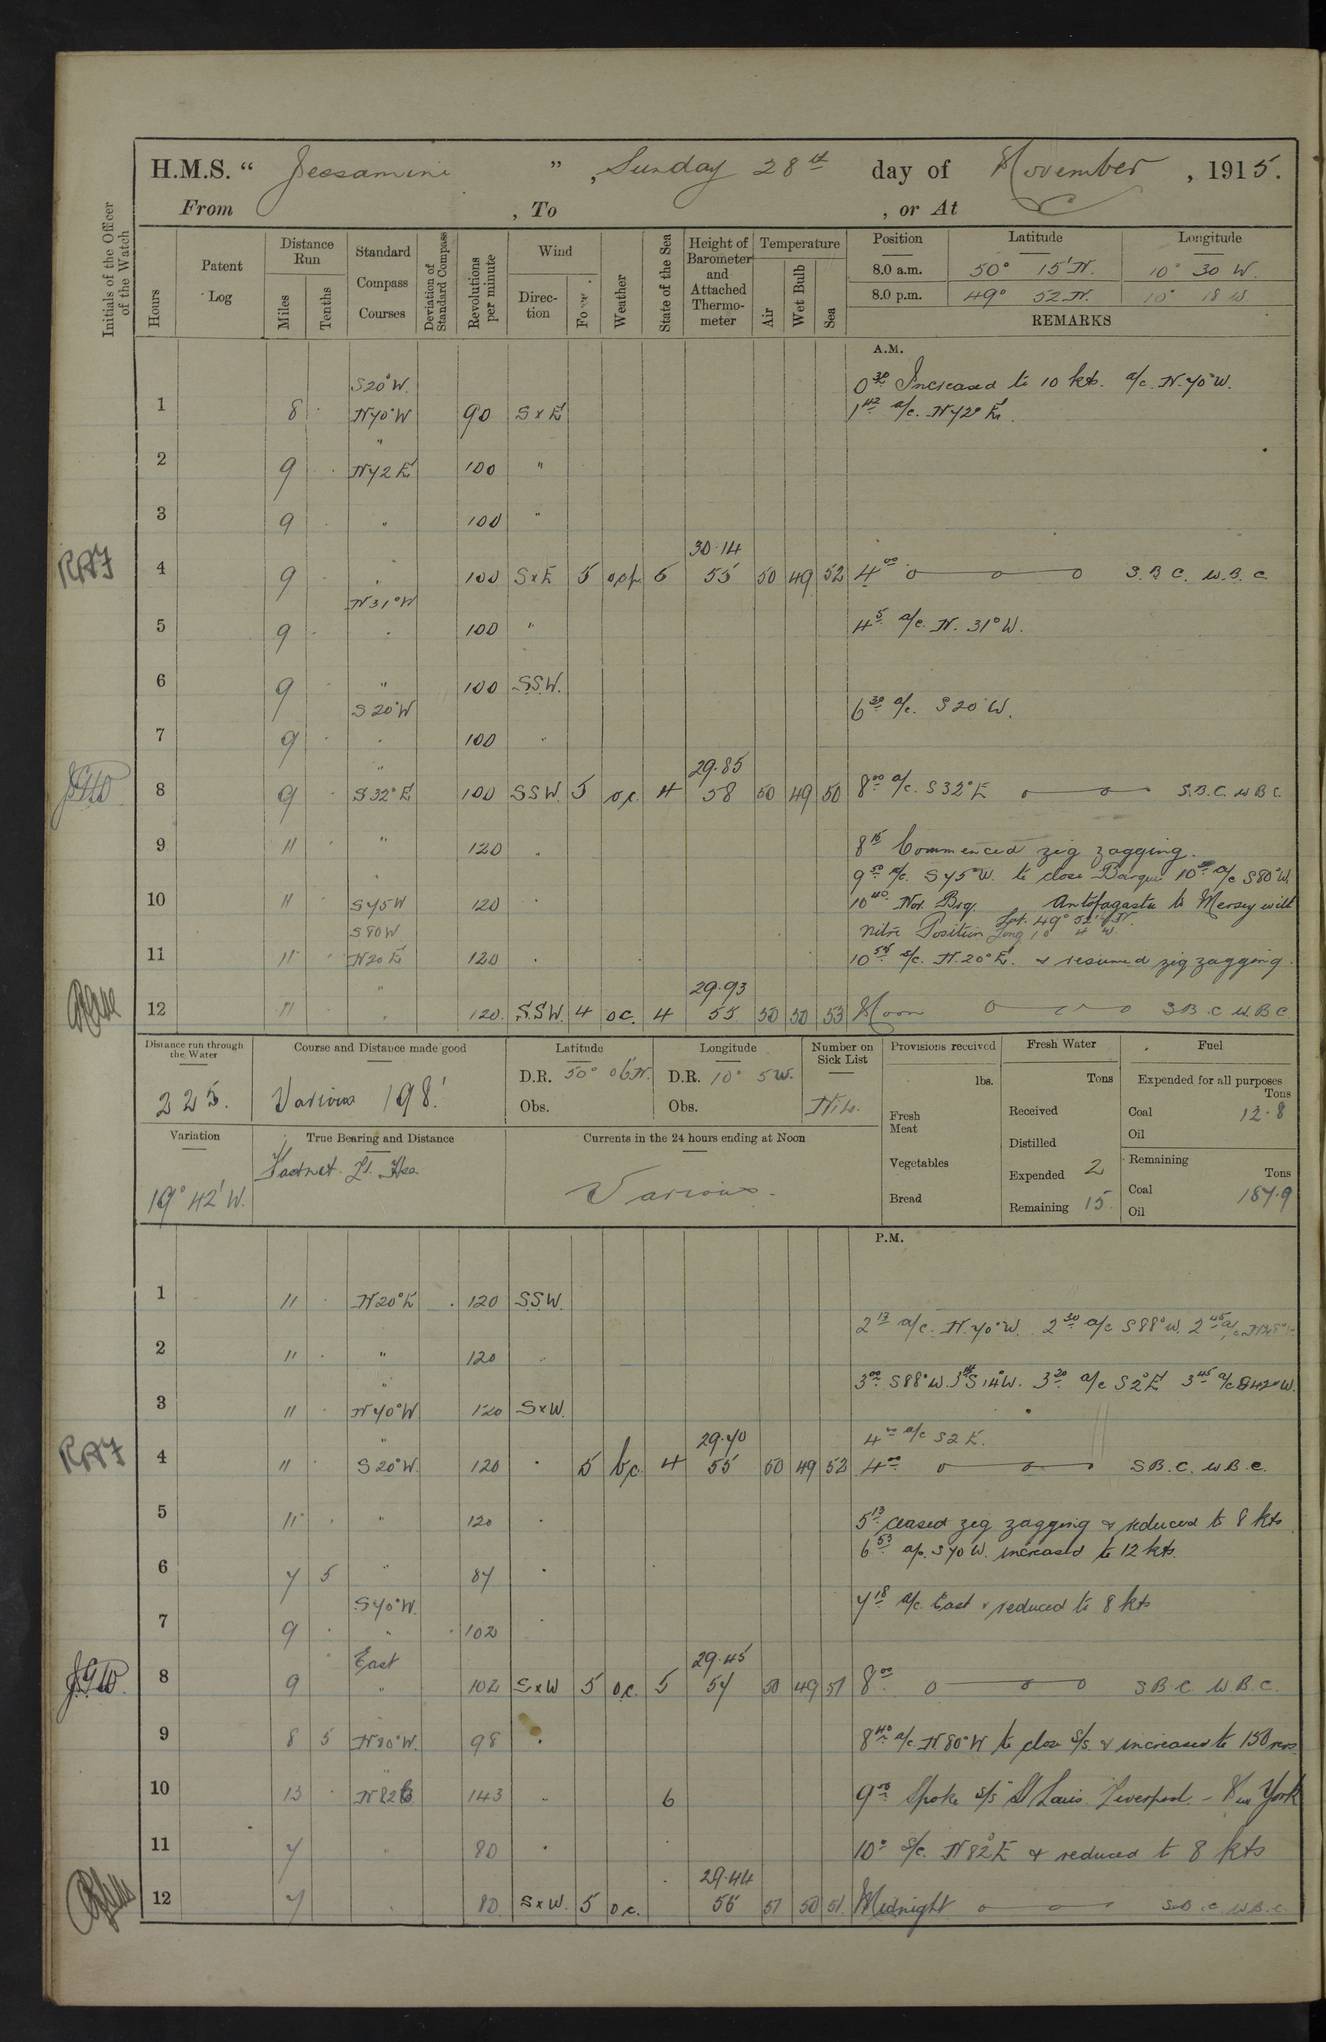 H.M.S. “ Jessamine ”, Sunday 28th day of November, 1915.
From , To , or At
Initials of the Officer of the Watch
Hours
Patent Log
Distance Run
Miles
Tenths
Standard Compass Courses
Deviation of Standard Compass
Revolutions per minute
Wind
Direction
Force
Weather
State of the Sea
Height of Barometer and Attached Thermometer
Temperature
Air
Wet Bulb
Sea
Position Latitude Longitude
8.0 a.m. 50° 15' N. 10° 30 W.
8.0 p.m. 49° 52 N. 10° 18 W.
REMARKS
A.M.
S20°W. 0 30 Increased to 10 kts. a/c. N.70°W.
1 8 N70°W 90 S x E 1 42 a/c. N72°E.
"
2 9 N72E 100 "
3 9 " 100 "
30.14
RAF 4 9 " 100 SxE 5 6 55 50 49 52 4 00 S.B.C. W.B.C.
N31°W
5 9 100 " 4 5 a/c. N. 31° W.
6 9 " 100 SSW.
S20°W 6 30 a/c. S20°W.
7 9 100 "
29.85
8 9 S32°E 100 SSW 5 o.c. 4 58 50 49 50 8 00 a/c. S32°E S.B.C. W.B.C.
9 11 " 120 8 15 Commenced zig zagging.
9 50 a/c. S75°W. to close Barque 10 a/c S80°W.
10 11 S75W 120 10 40 Nor. Brq. Antofagasta to Mersey with
S80W nitre Position Lat. 49° 52' N. Long 10 4 W.
11 11 N20E 120 10 54 s/c. N.20°E. & resumed zig zagging.
29.93
12 11 120. S.S.W. 4 oc. 4 55 50 50 53 Noon S.B.C W.B.C.
Distance run through the Water
225.
Course and Distance made good
Various 198'
Latitude
D.R. 50° 06 N.
Obs.
Longitude
D.R. 10° 5 W.
Obs.
Number on Sick List
Nil.
Provisions received
lbs.
Fresh Meat
Vegetables
Bread
Fresh Water
Tons
Received
Distilled
Expended 2
Remaining 15
Fuel
Expended for all purposes
Tons
Coal 12.8
Oil
Remaining
Tons
Coal 187.9
Oil
Variation
19° 42' W.
True Bearing and Distance
Fastnet Lt. Ho.
Currents in the 24 hours ending at Noon
Various.
P.M.
1 11 N20°E 120 SSW.
2 13 a/c. N.70°W. 2 30 a/c S88°W. 2 45 a/c
2 11 " 120
3 00 S88°W. S14°W. 3 30 a/c S2°E 3 45 a/c S42°W.
3 11 N70°W 120 SxW.
29.70 4 a/c S2E.
RAF 4 11 S20°W. 120 5 bc 4 55 50 49 52 4 00 S.B.C. W.B.C.
5 11 " 120 5 13 ceased zig zagging & reduced to 8 kts
6 53 a/c. S70W. increased to 12 kts.
6 7 5 " 87
S70°W. 7 18 a/c. East & reduced to 8 kts
7 9 " 102
East 29.45
8 9 " 102 SxW 5 o.c. 5 57 50 49 51 8 00 S.B.C. W.B.C.
9 8 5 N80°W. 98 8 40 a/c. N80°W to close S/s. & increased to 150 revs.
10 13 N82E 143 6 9 00 Spoke S/s "St Louis. Liverpool - New York
11 7 " 80 10 0 s/c. N82°E & reduced to 8 kts
29.44
12 7 80 SxW. 5 o.c. 56 51 50 51 Midnight S.B.C. W.B.C.